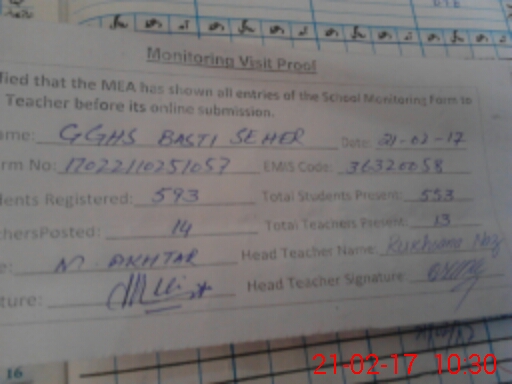 Monitoring Visit Proof
fied that the MEA has shown all entries of the School Monitoring Form to
Teacher before its online submission.
ame: GGHS BASTI SEHER Date: 21-02-17
rm No: 17022110251057 EMIS Code: 36320058
dents Registered: 593 Total Students Present: 553
chersPosted: 14 Total Teachers Present: 13
e: M. AKHTAR Head Teacher Name: Rukhsana Naz
ture: Head Teacher Signature
16
21-02-17 10:30